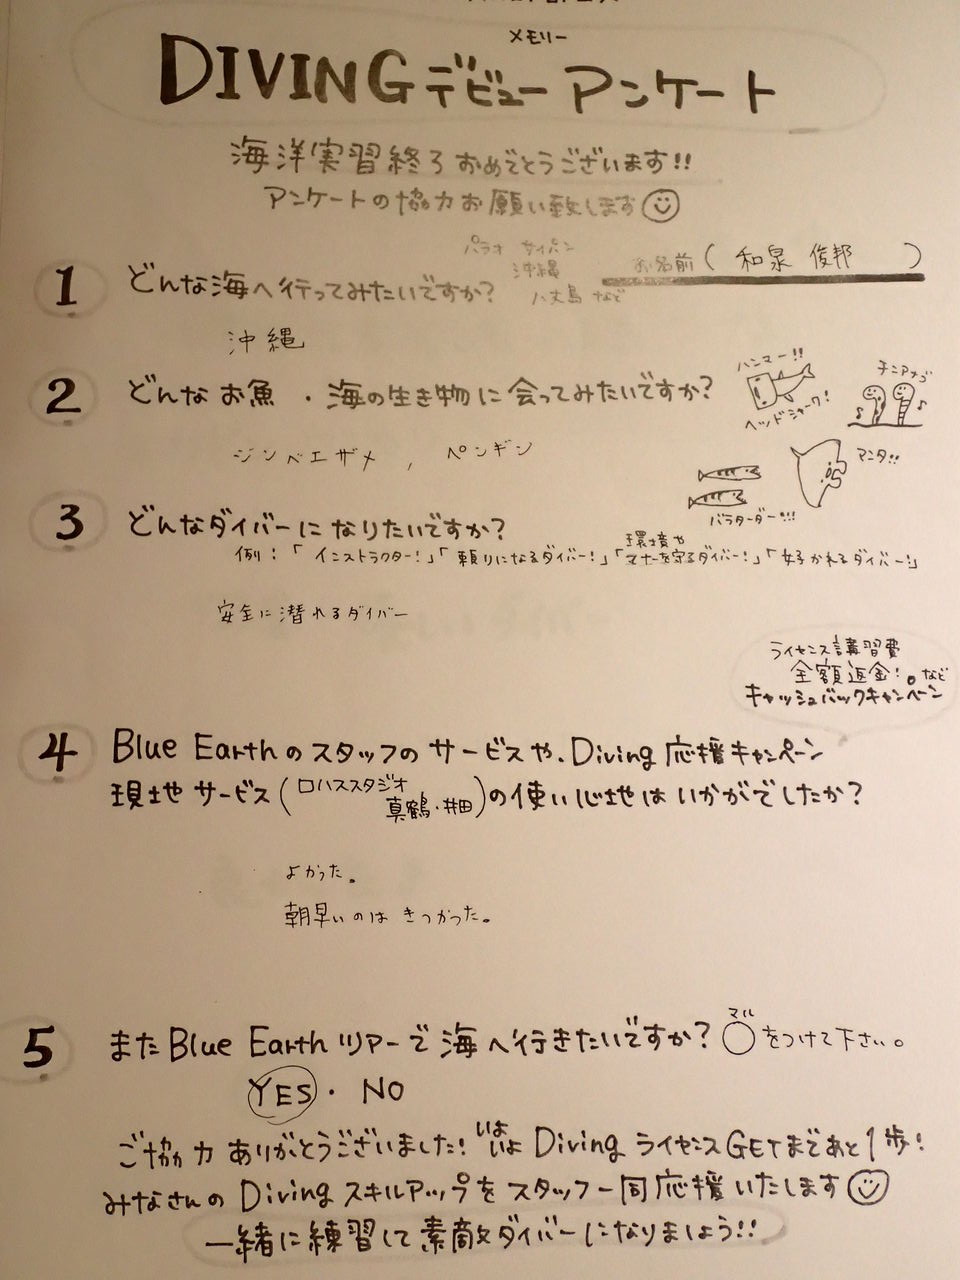 メモリー
DIVINGデビューアンケート
海洋実習終了おめでとうございます!!
アンケートの協力お願い致します
パラオ サイパン
沖縄
八丈島 など
お名前 ( 和泉 俊邦 )
1 どんな海へ行ってみたいですか?
沖縄
2 どんなお魚・海の生き物に会ってみたいですか?
ハンマー!!
ヘッドシャーク!
チンアナゴ
ジンベエザメ , ペンギン
マンタ!!
バラクーダー!!!
3 どんなダイバーになりたいですか?
例:「インストラクター!」「頼りになるダイバー!」「環境やマナーを守るダイバー!」「好かれるダイバー!」
安全に潜れるダイバー
ライセンス講習費
全額返金!など
キャッシュバックキャンペーン
4 Blue Earthのスタッフのサービスや、Diving応援キャンペーン
現地サービス(ロハススタジオ
真鶴・井田)の使い心地はいかがでしたか?
よかった。
朝早いのは きつかった。
5 またBlue Earthツアーで海へ行きたいですか? マル
○をつけて下さい。
YES・NO
ご協力ありがとうございました!いよいよDivingライセンスGETまであと1歩!
みなさんのDivingスキルアップをスタッフ一同応援いたします
一緒に練習して素敵ダイバーになりましょう!!